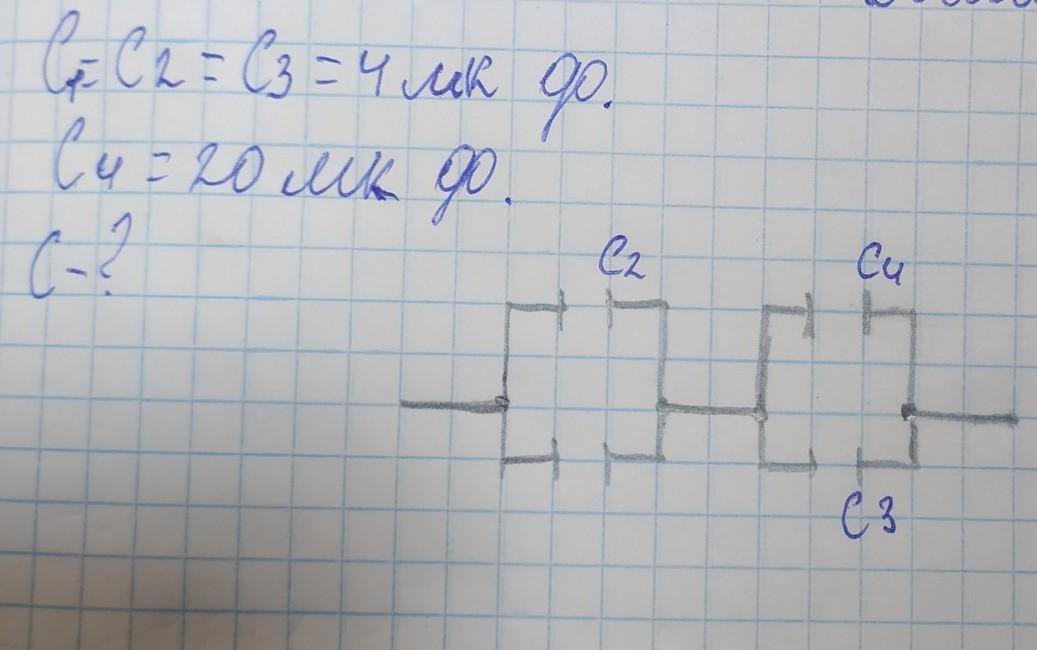 C1=C2=C3=4 мк ф.
C4=20 мк ф.
C-?
C2
C4
C3